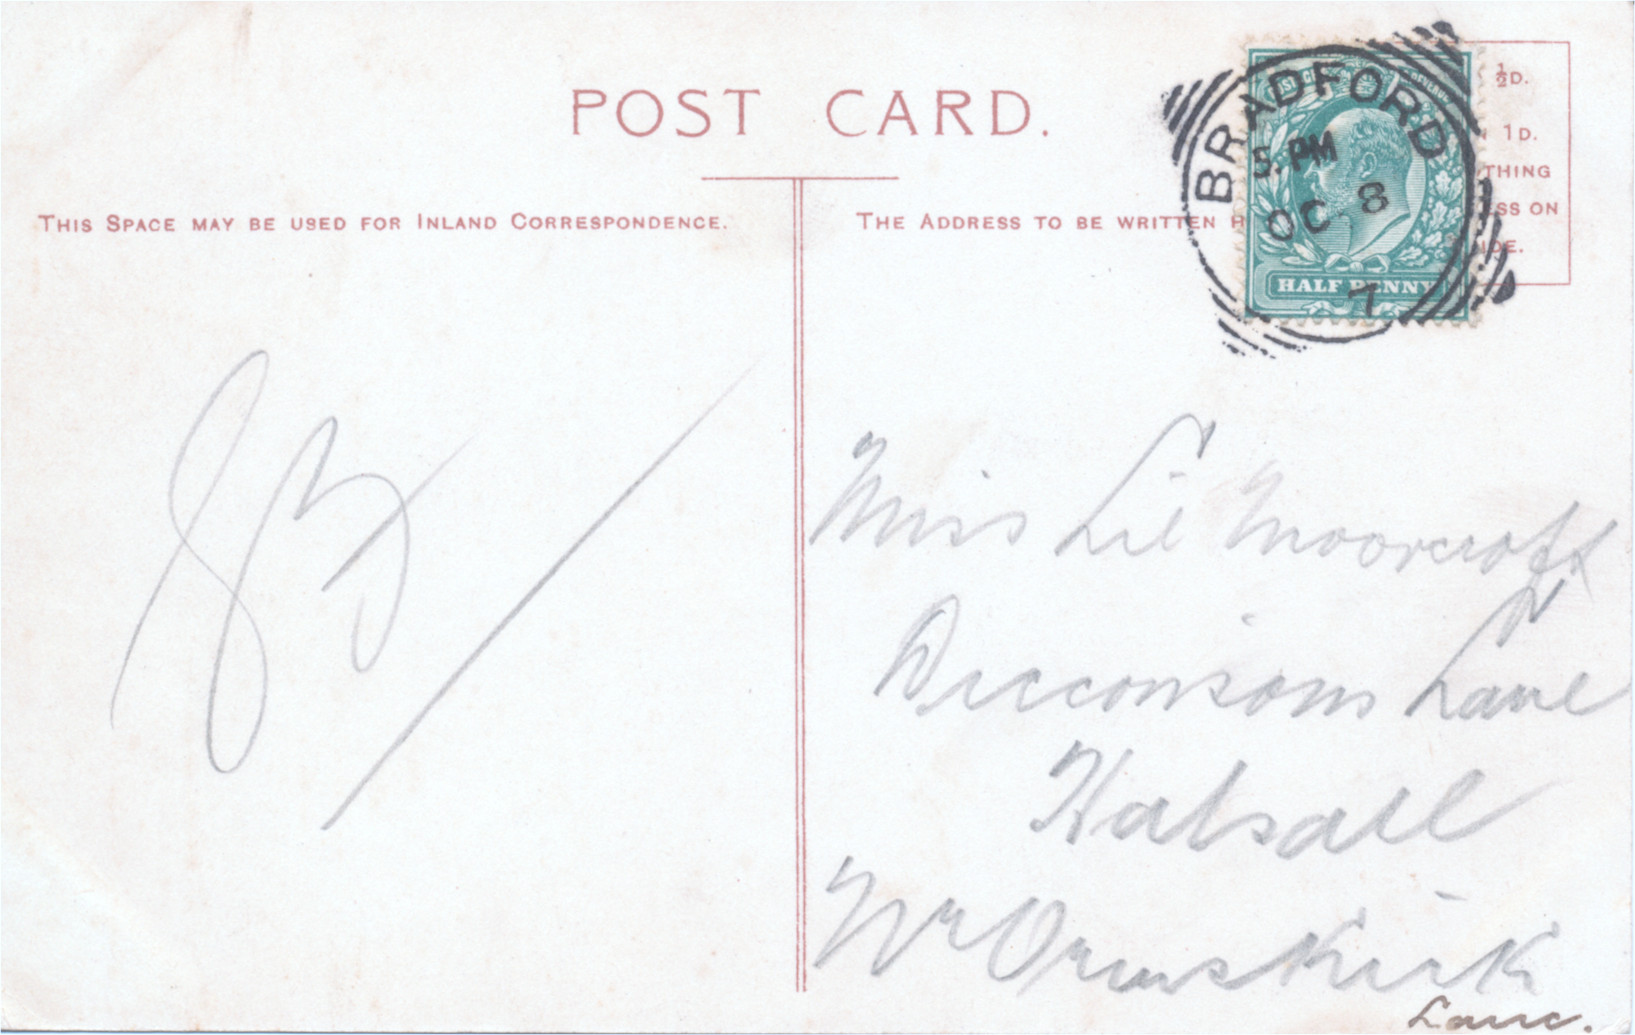 POST CARD.
THIS SPACE MAY BE USED FOR INLAND CORRESPONDENCE.
THE ADDRESS TO BE WRITTEN H
½D.
1D.
THING
SS ON
IDE.
BRADFORD
5. PM
OC 8
7
HALFPENNY
Miss Lil Moorcroft
Dicconsons Lane
Halsall
Nr Ormskirk
Lanc.